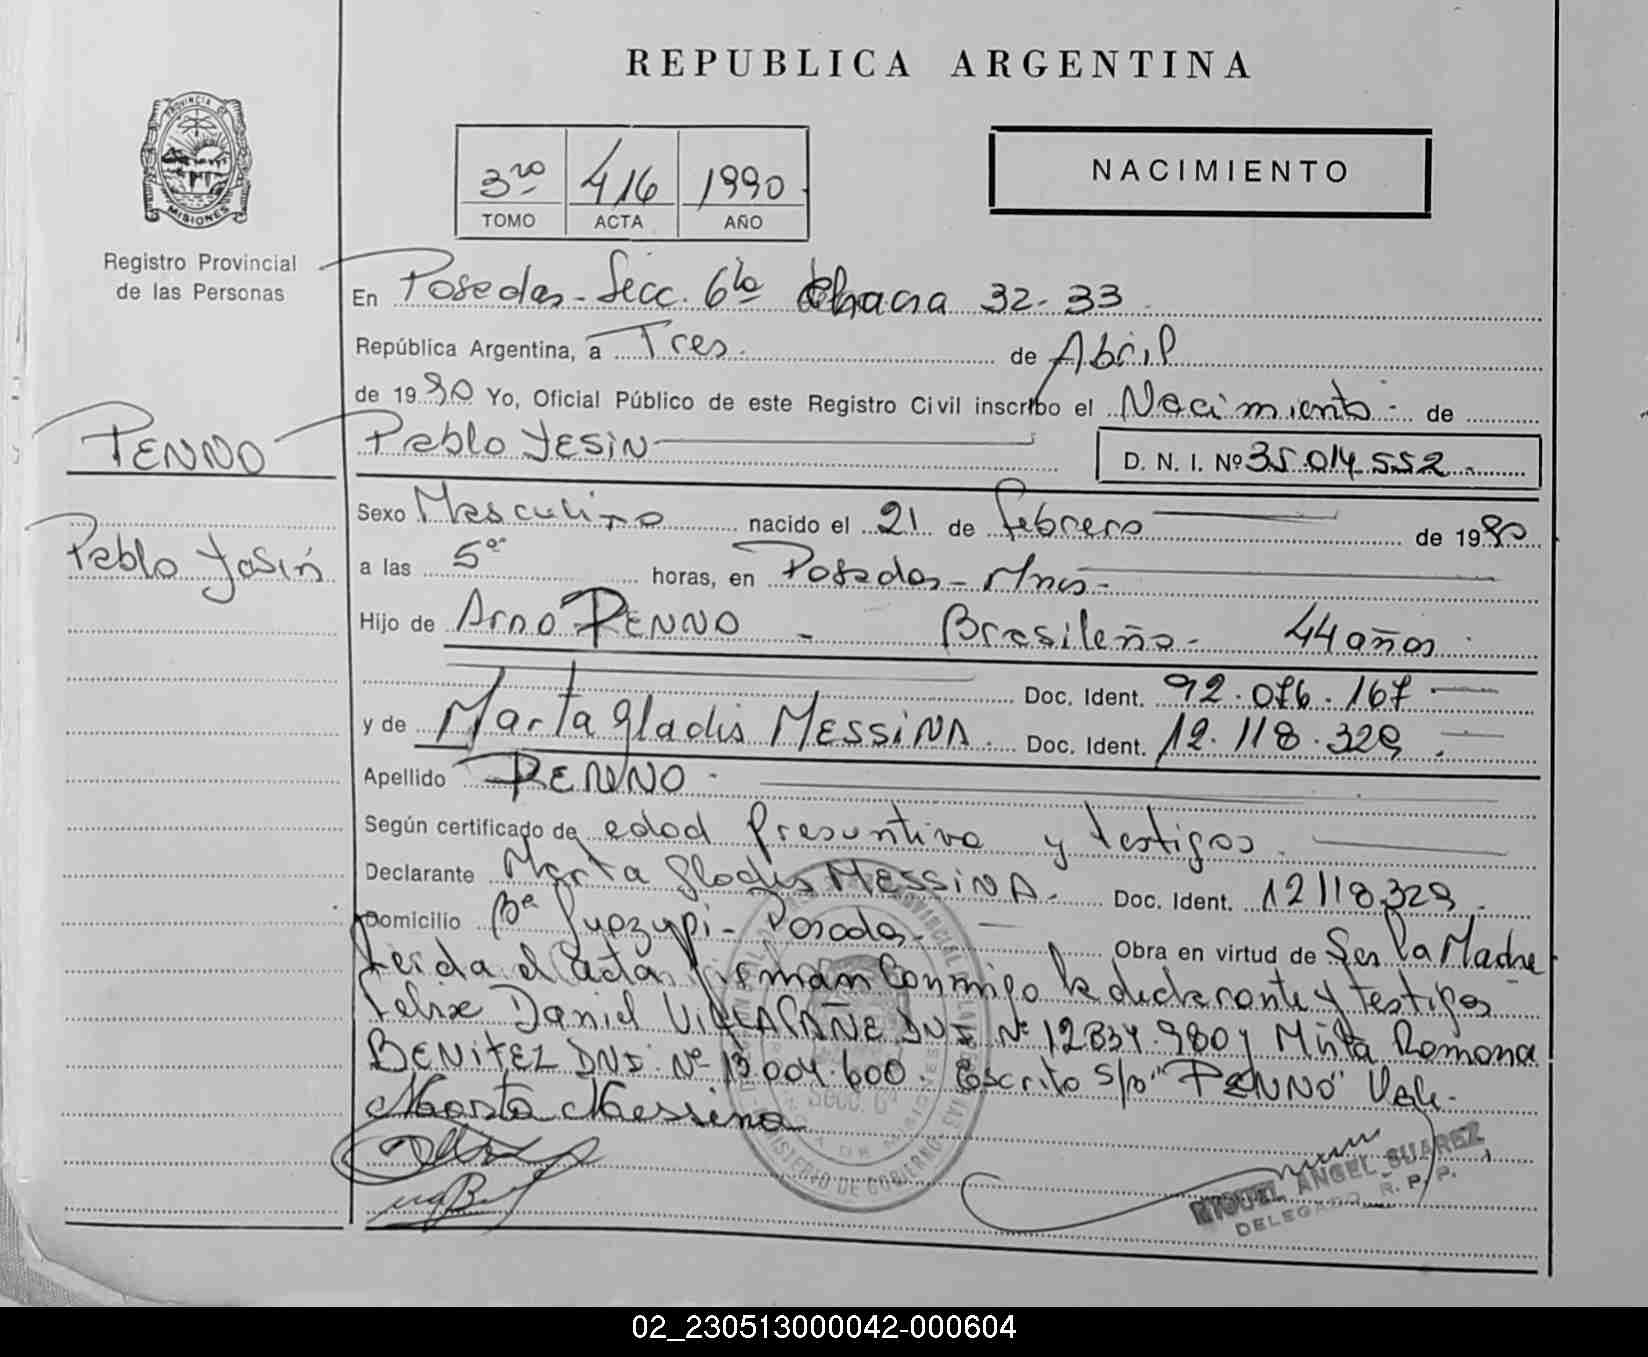 REPUBLICA ARGENTINA
PROVINCIA DE
MISIONES
Registro Provincial
de las Personas
3ro 416 1990
TOMO ACTA AÑO
NACIMIENTO
En Posadas - Secc. 6ta Chacra 32-33
República Argentina, a Tres de Abril
de 1990 Yo, Oficial Público de este Registro Civil inscribo el Nacimiento de
PENNO
Pablo YESIN D. N. I. Nº 35.014.552
Pablo Yasin
Sexo Masculino nacido el 21 de febrero de 1990
a las 5 horas, en Posadas - Mnes -
Hijo de Arno PENNO - Brasileño - 44 años
Doc. Ident. 92.076.167
y de Marta Gladis MESSINA Doc. Ident. 12.118.329
Apellido PENNO
Según certificado de edad Presuntiva y testigos
Declarante Marta Gladis MESSINA Doc. Ident. 12118329
Domicilio Bº - Posadas - Obra en virtud de Ser la Madre
Leida el acta, firman conmigo la declarante y testigos
Felix Daniel VILLACAÑE DNI Nº 12834.980 y Mirta Ramona
BENITEZ DNI. Nº 13.004.600. Escrito s/r "PENNO" Vale.
Marta Messina
MINISTERIO DE GOBIERNO
SECC. 6ª
MIGUEL ANGEL SUAREZ
DELEGADO R. P. P.
02_230513000042-000604